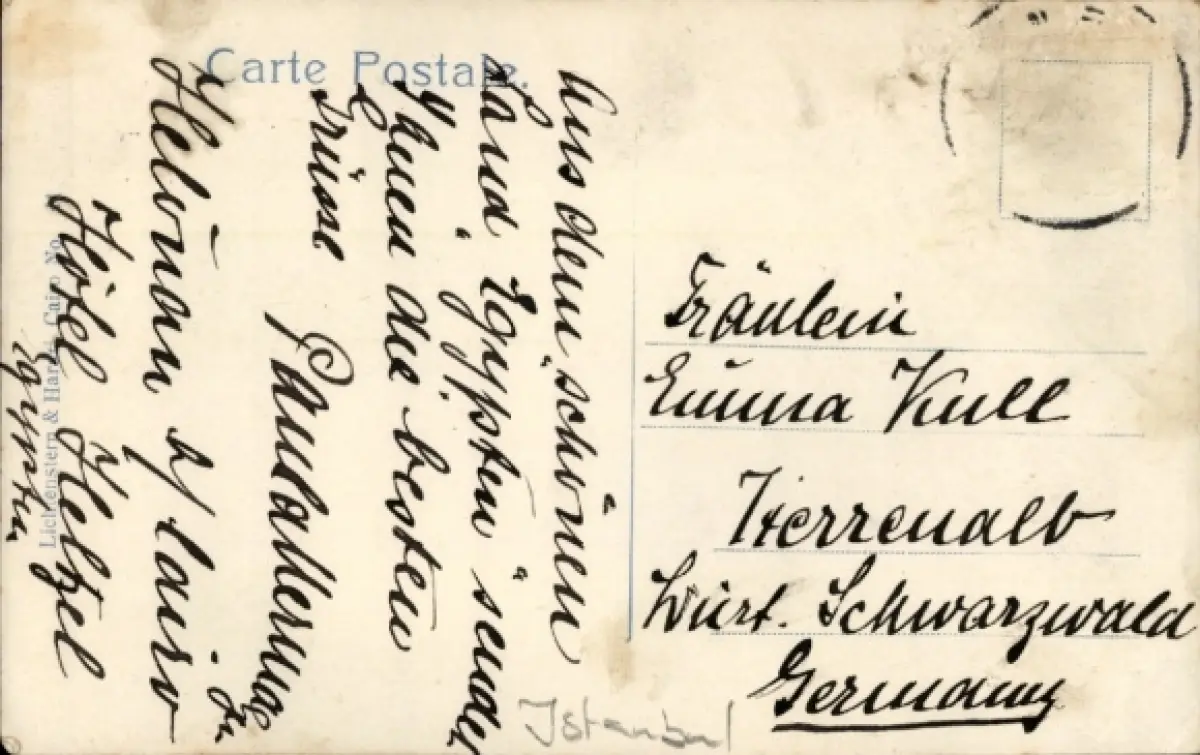 Carte Postale.
Aus dem schönen
Land Egypten sendet
Ihnen die besten
Grüsse
Helouan b/Cairo
Hôtel Heltzel
Egypten
Lichtenstern & Harari, Cairo No.
Fräulein
Emma Kull
Herrenalb
Würt. Schwarzwald
Germany
Istanbul